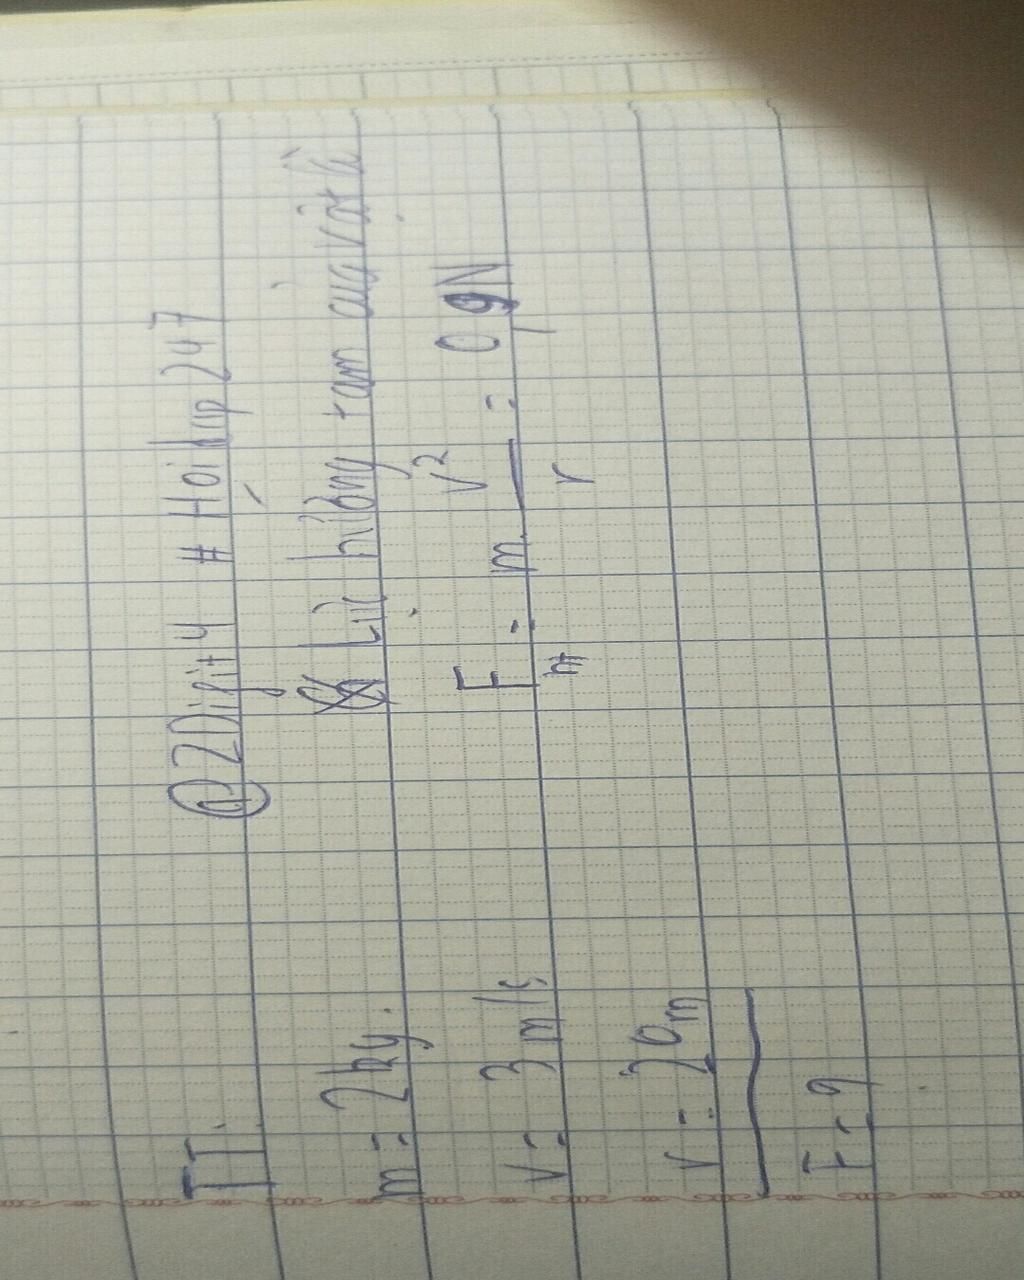 @2Digity # Hỏi đáp 247
TT.
m = 2kg.
v = 3m/s
r = 20m
F = ?
Lực hướng tâm của vật là
F ht = m v² / r = 0,9N